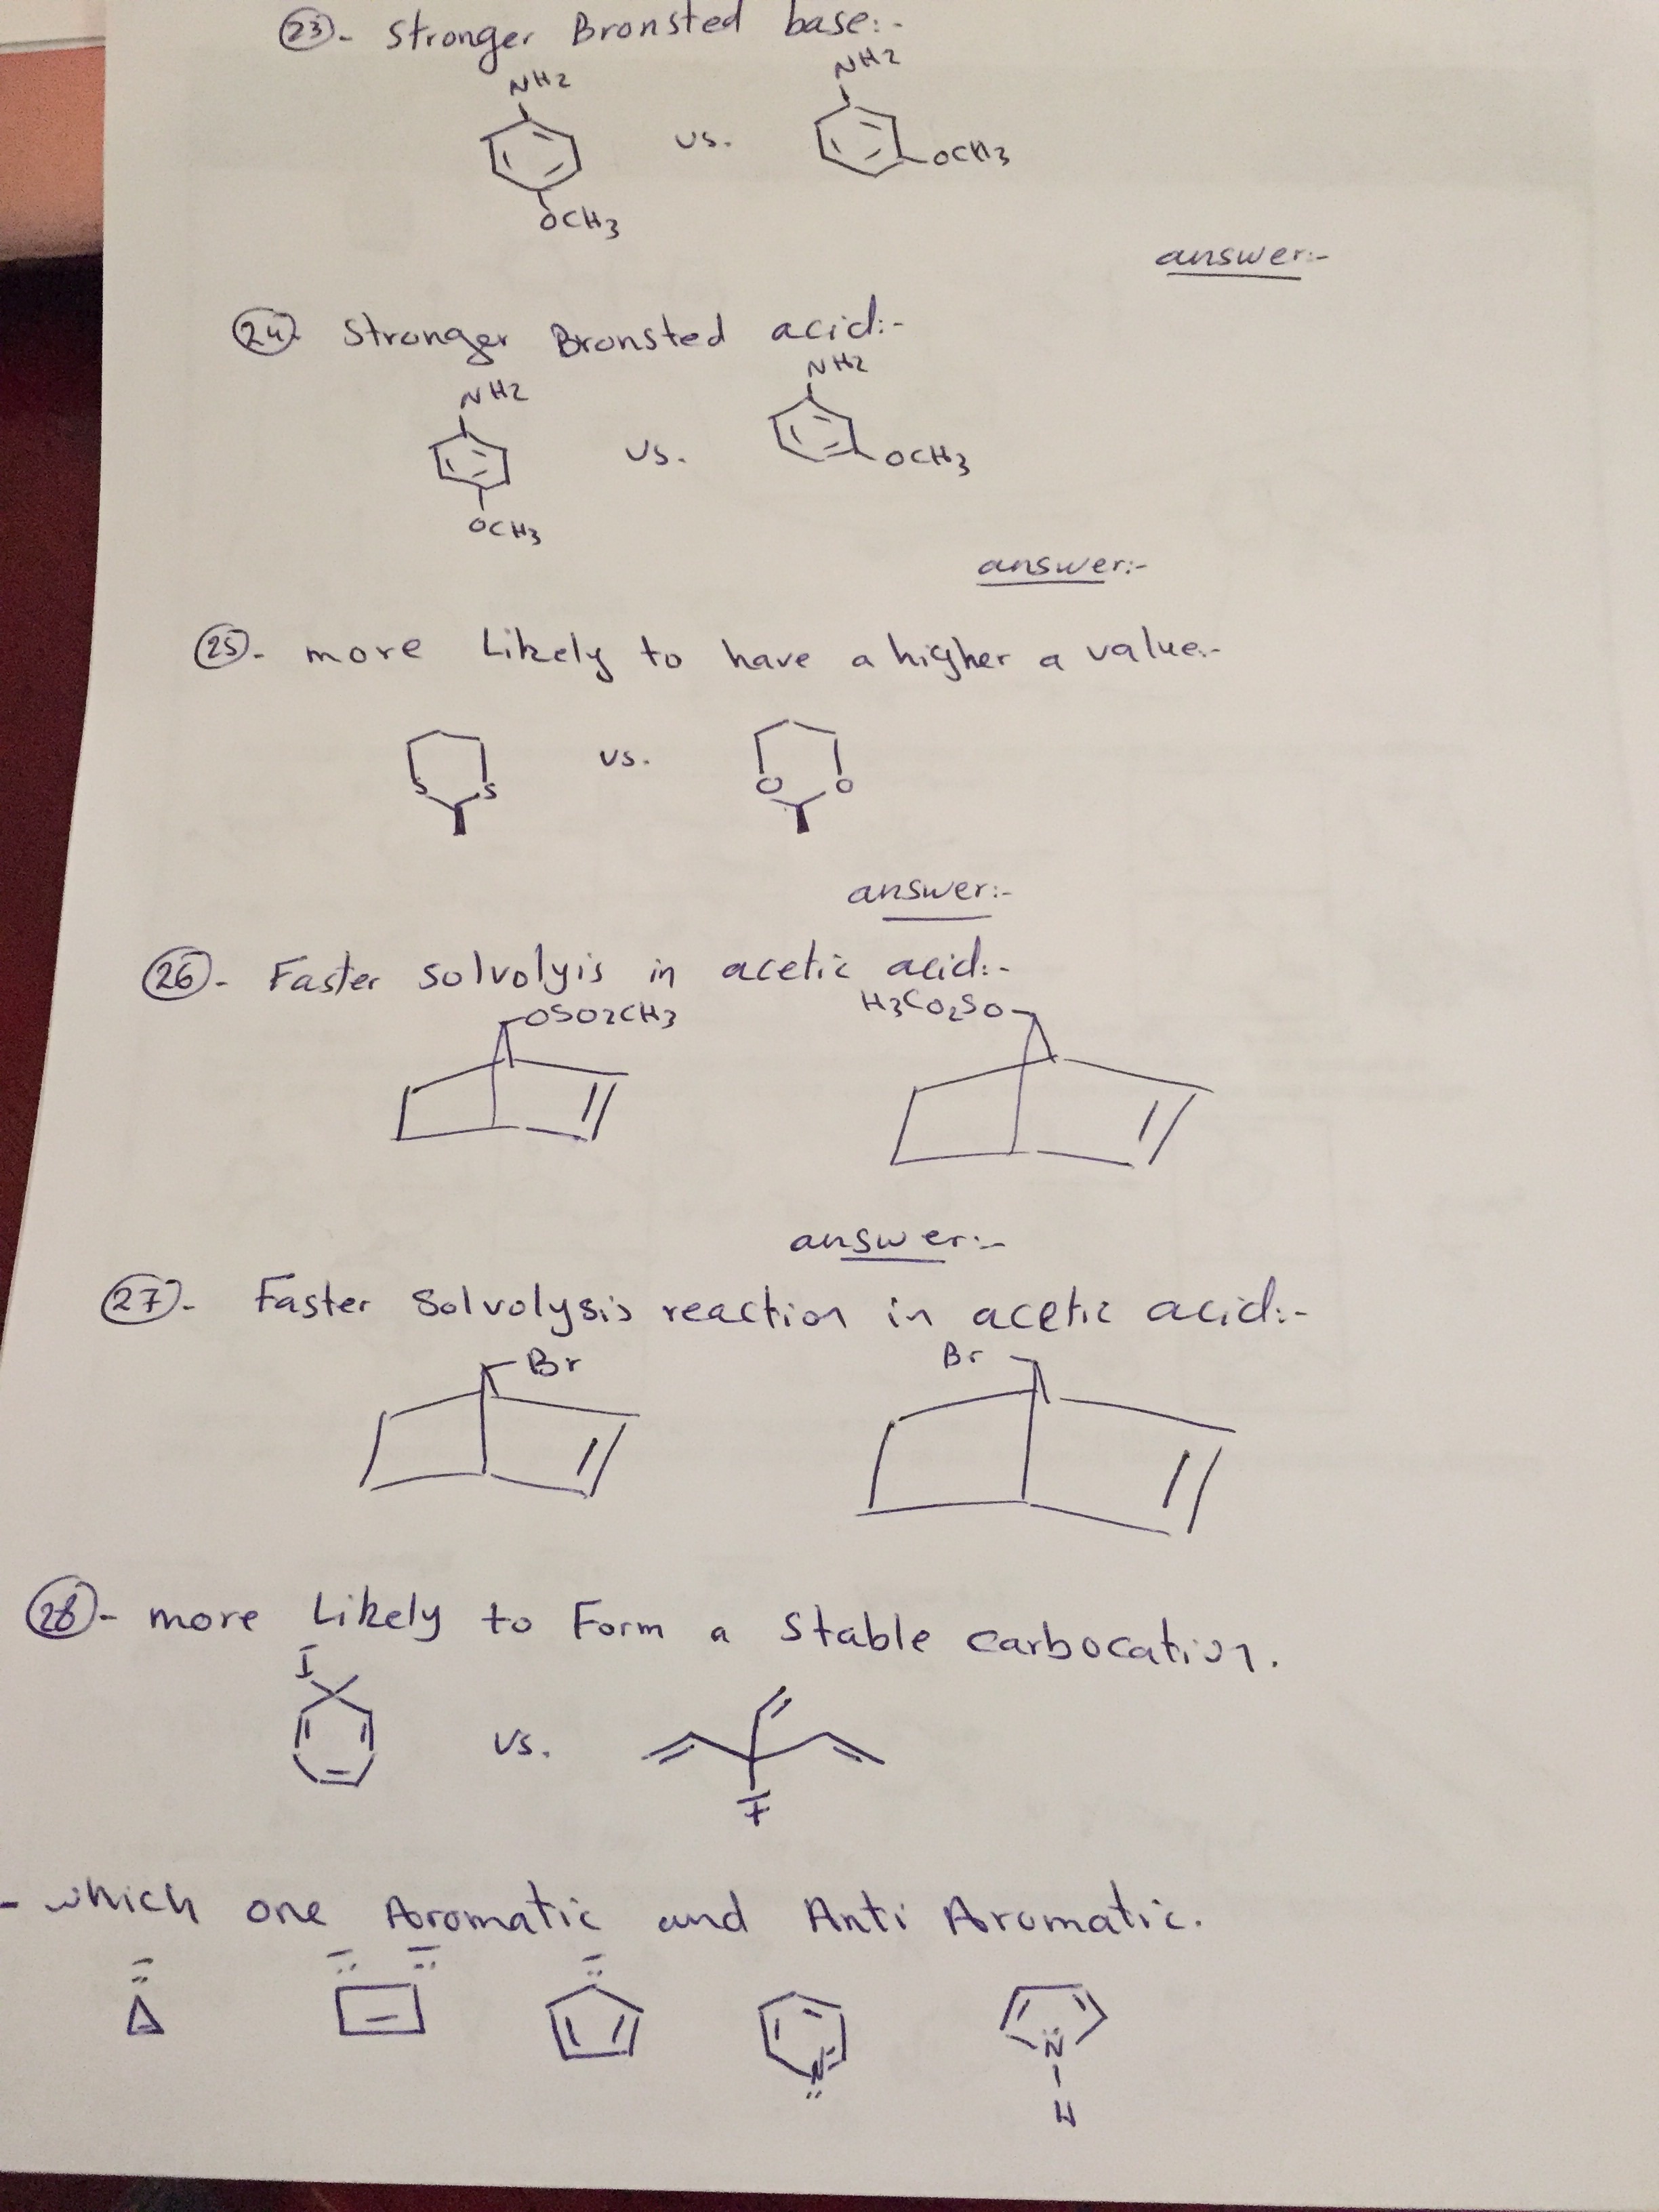 23- Stronger Bronsted base:-
NH2 NH2
vs. OCH3
OCH3
answer:-
24 Stronger Bronsted acid:-
NH2 NH2
vs. OCH3
OCH3
answer:-
25- more Likely to have a higher a value:-
S S vs. O O
answer:-
26- Faster solvolyis in acetic acid:-
OSO2CH3 H3CO2SO
answer:-
27- Faster Solvolysis reaction in acetic acid:-
Br Br
28- more Likely to Form a Stable carbocation.
I
vs.
F
- which one Aromatic and Anti Aromatic.
N N
H